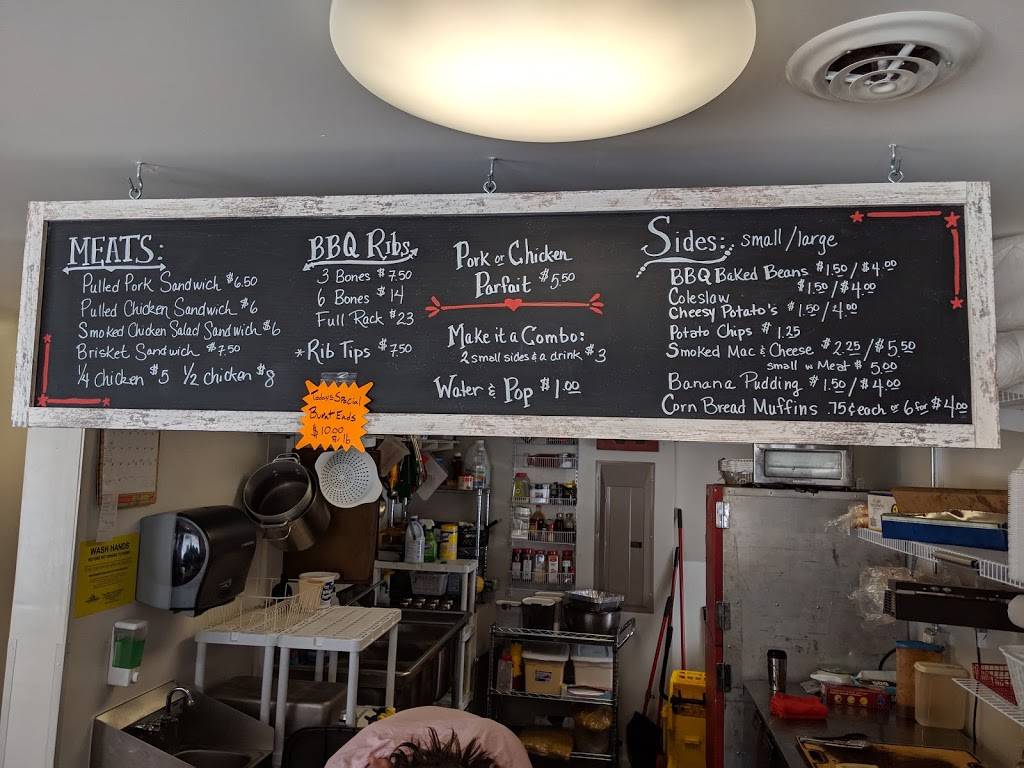 MEATS:
Pulled Pork Sandwich $6.50
Pulled Chicken Sandwich $6
Smoked Chicken Salad Sandwich $6
Brisket Sandwich $7.50
1/4 chicken $5 1/2 chicken $8
BBQ Ribs
3 Bones $7.50
6 Bones $14
Full Rack $23
*Rib Tips $7.50
Today's Special
Burnt Ends
$10.00
a/lb
Pork or Chicken
Parfait $5.50
Make it a Combo:
2 small sides & a drink $3
Water & Pop $1.00
Sides: small/large
BBQ Baked Beans $1.50/$4.00
Coleslaw $1.50/$4.00
Cheesy Potato's $1.50/4.00
Potato Chips $1.25
Smoked Mac & Cheese $2.25/$5.50
small w Meat $5.00
Banana Pudding $1.50/$4.00
Corn Bread Muffins .75¢ each or 6 for $4.00
WASH HANDS